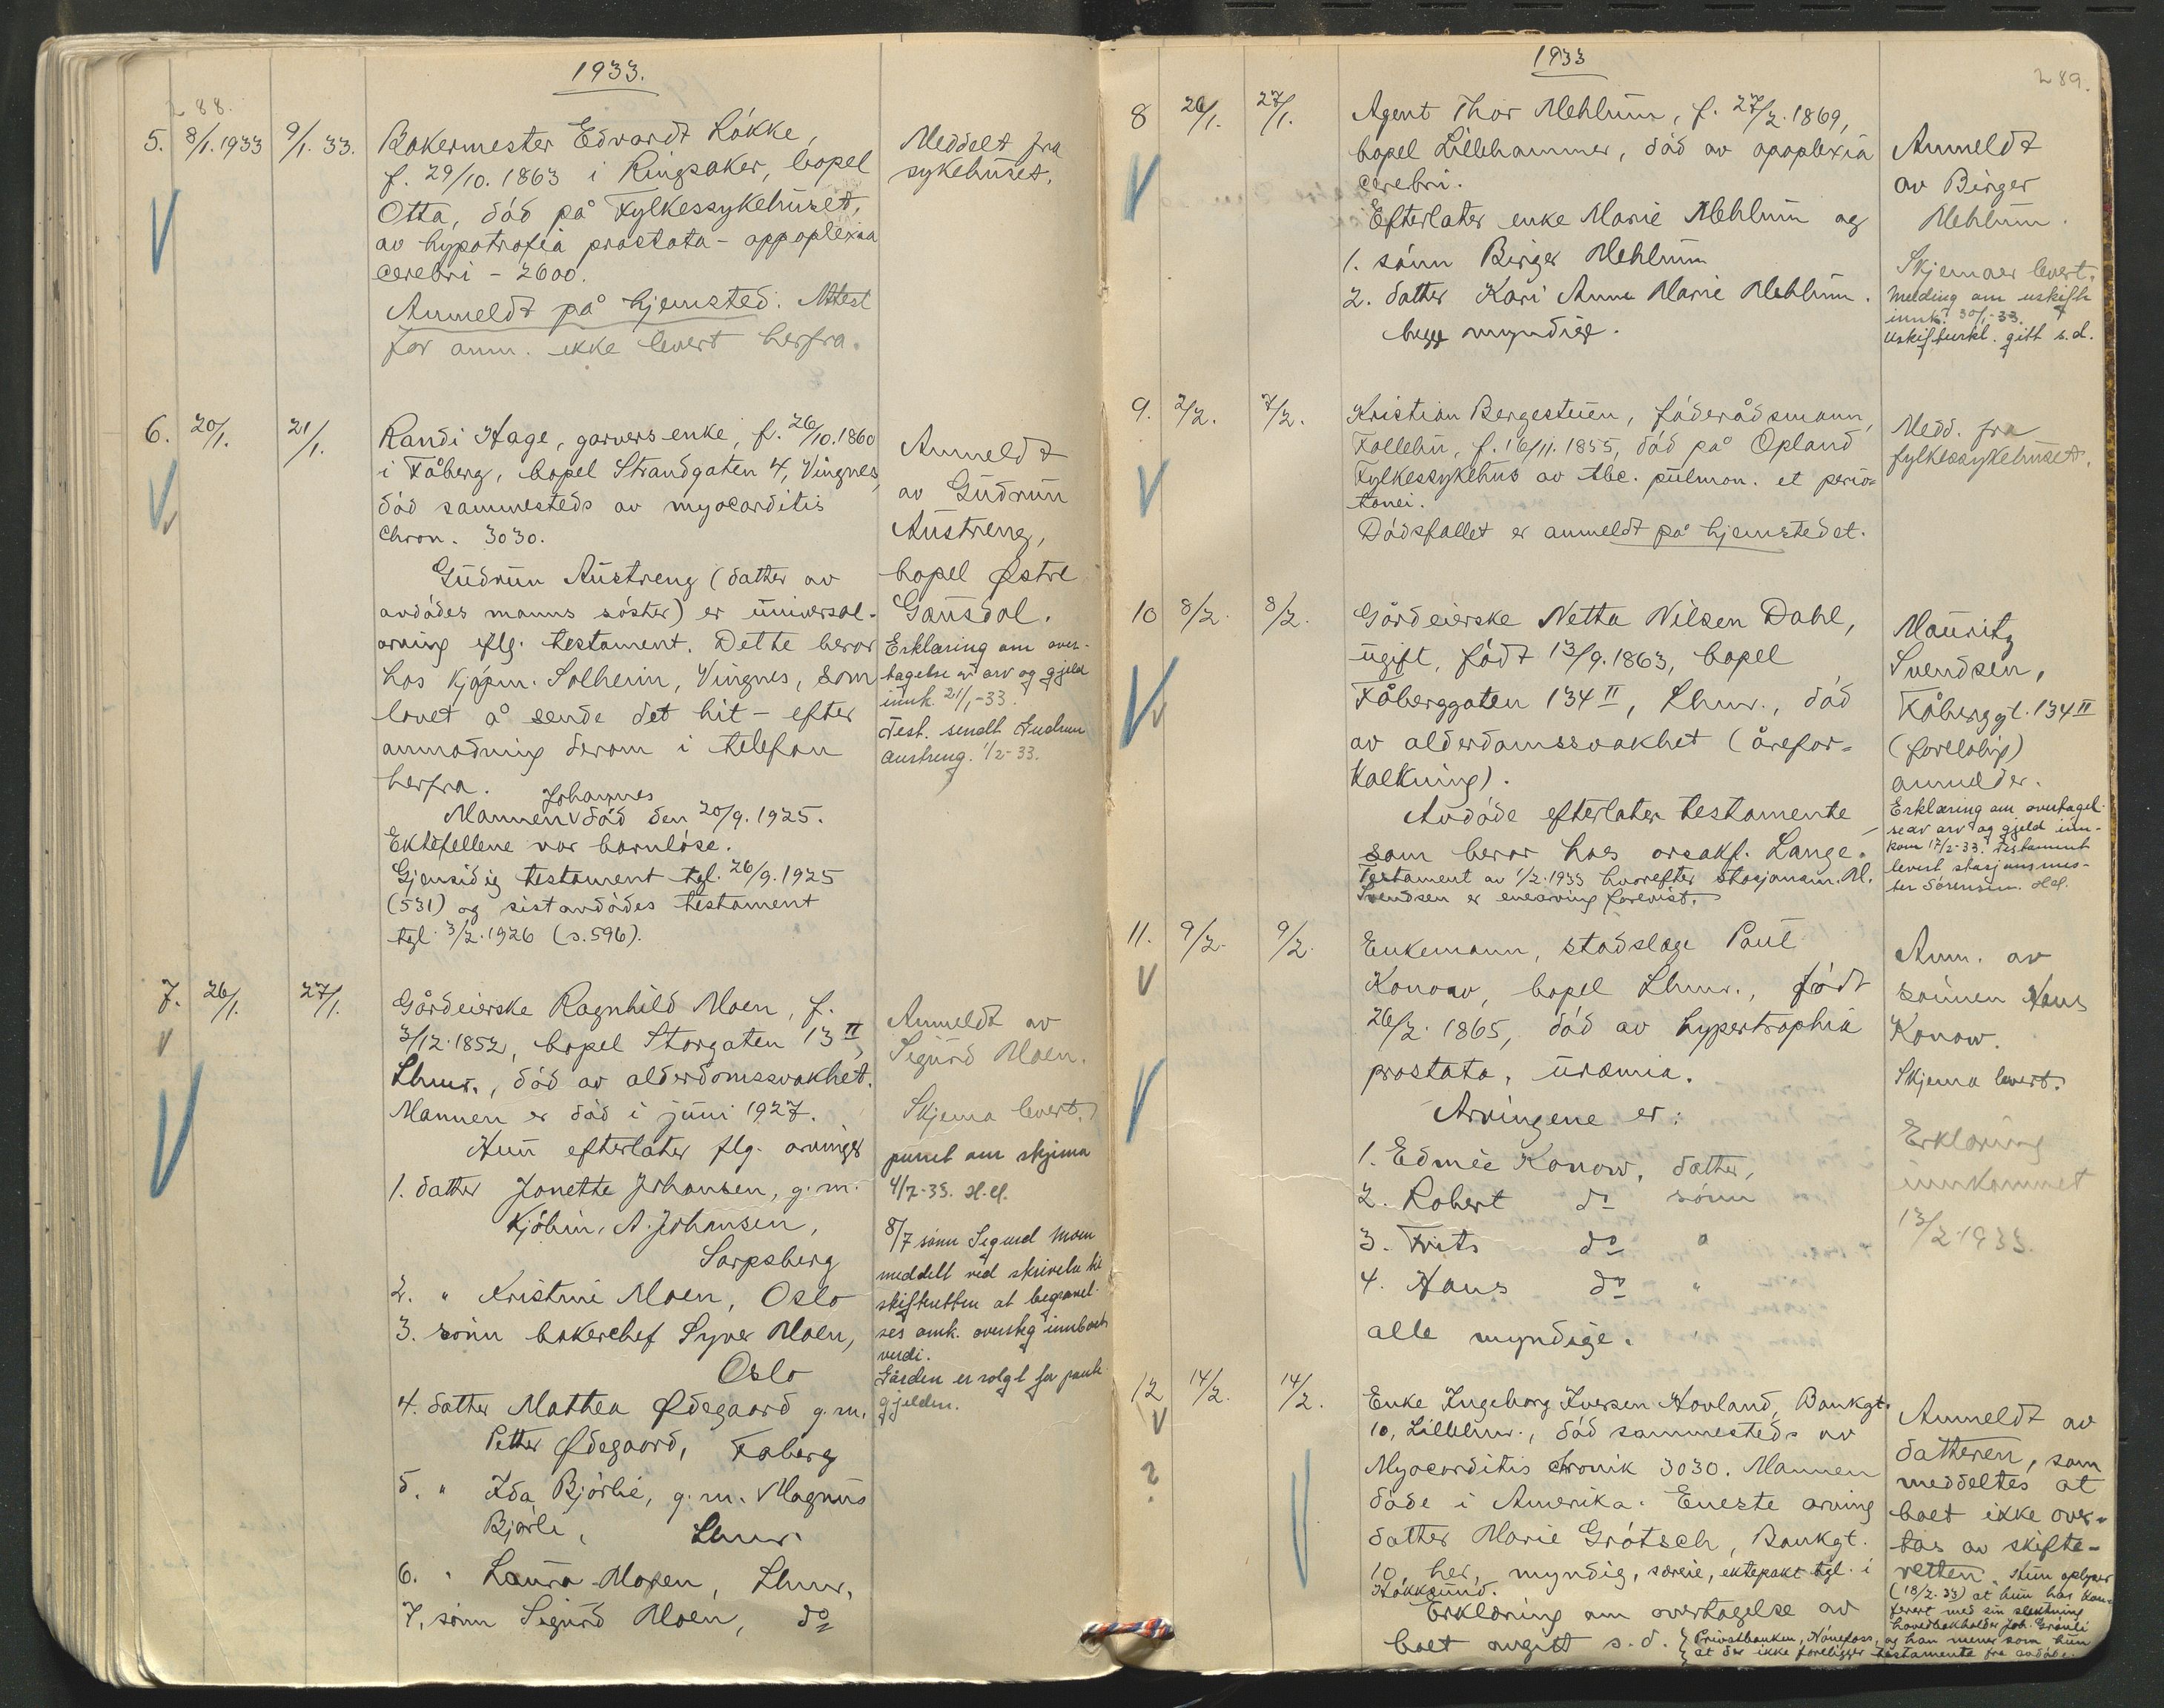 1933.
288.
5. 8/1.1933 9/1. 33. Bakermester Edvardt Løkke,
f. 29/10. 1863 i Ringsaker, bopel
Otta, død på Fylkessykehuset,
av hypotrofia prostata - appoplexia
cerebri - 2600.
Anmeldt på hjemsted. Attest
for anm. ikke levert herfra.
Meddelt fra
sykehuset.
6. 20/1. 21/1. Randi Hage, garvers enke, f. 26/10.1860
i Fåberg, bopel Strandgaten 4, Vingnes,
død sammesteds av myocarditis
chron. 3030.
Gudrun Austreng (datter av
avdødes manns søster) er universal-
arving eflg. testament. Dette beror
hos kjøpm. Solheim, Vingnes, som
lovet å sende det hit - efter
anmodning derom i telefon
herfra.
Johannes
Mannen død den 20/9. 1925.
Ektefellene var barnløse.
Gjensidig testament tgl. 26/9. 1925
(531) og sistavdødes testament
tgl. 3/2. 1926 (s. 596).
Anmeldt
av Gudrun
Austreng,
bopel Østre
Gausdal.
Erklæring om over-
tagelse av arv og gjeld
innk. 21/1-33.
Test. sendt Gudrun
Austreng. 1/2-33.
7. 26/1. 27/1. Gårdeierske Ragnhild Moen, f.
3/12.1852, bopel Storgaten 13 II,
Lhmr., død av alderdomssvakhet.
Mannen er død i juni 1927.
Hun efterlater flg. arvinger
1. datter Janette Johansen, g.m.
Kjøbm. A. Johansen,
Sarpsberg
2. " Kristine Moen, Oslo
3. sønn bakerchef Syver Moen,
Oslo
4. datter Mathea Ødegaard g.m.
Petter Ødegaard, Faberg
5. " Ida Bjørlie, g.m. Magnus
Bjørli, Lhmr.
6. " Laura Moen, Lhmr,
7. sønn Sigurd Moen, do
Anmeldt av
Sigurd Moen.
Skjema levert.
purret om skjema
4/7-33. H.H.
8/7 sønn Sigurd Moen
meddelt ved skrivelse til
skifteretten at begravel-
ses omk. oversteg innboets
verdi.
Gården er solgt for pante-
gjelden.
1933
289.
8 26/1. 27/1. Agent Thor Mehlum, f. 27/2. 1869,
bopel Lillehammer, død av apoplexia
cerebri.
Efterlater enke Marie Mehlum og
1. sønn Birger Mehlum
2. datter Kari Anna Marie Mehlum.
begge myndige.
Anmeldt
av Birger
Mehlum.
Skjemaer levert.
Melding om uskifte
innk. 30/1-33.
Uskifteerkl. gitt s.d.
9. 2/2. 7/2. Kristian Bergestuen, føderådsmann,
Follebu, f. 16/11. 1855, død på Opland
Fylkessykehus av tbc. pulmon. et perio-
tonei.
Dødsfallet er anmeldt på hjemstedet.
Medd. fra
fylkessykehuset.
10 8/2. 8/2. Gårdeierske Netta Nilsen Dahl,
ugift, født 13/9. 1863, bopel
Fåberggaten 134 II, Lhmr., død
av alderdomssvakhet (årefor-
kalkning).
Avdøde efterlater testamente
som beror hos orsakf. Lange.
Testament av 1/2.1933 hvorefter stasjonsm. M.
Svendsen er enearving forevist.
Mauritz
Svendsen,
Fåberggt. 134 II
(foreløbig)
anmelder.
Erklæring om overtagel-
se av arv og gjeld inn-
kom 17/2-33. Testament
levert stasjonsmes-
ter Sørensen. H.H.
11. 9/2. 9/2. Enkemann, stadslæge Paul
Konow, bopel Lhmr., født
26/2. 1865, død av hypertrophia
prostata, uræmia.
Arvingene er:
1. Edmée Konow, datter,
2. Robert do sønn
3. Frits do "
4. Hans do "
alle myndige.
Anm. av
sønnen Hans
Konow.
Skjema levert.
Erklæring
innkommet
13/2-1933.
12 14/2. 14/2. Enke Ingeborg Iversen Hovland, Bankgt.
10, Lillehmr., død sammesteds av
Myocarditis chronik 3030. Mannen
døde i Amerika. Eneste arving
datter Marie Grøtsch, Bankgt.
10, her, myndig, særeie, ektepakt tgl. i
Hokksund.
Erklæring om overtagelse av
boet avgitt s.d.
?
Anmeldt av
datteren, som
meddeltes at
boet ikke over-
tas av skifte-
retten. Hun oplyser
(18/2-33) at hun har kon-
ferert med sin slektning
hovedbokholder Joh. Grønli
Privatbanken, Hønefoss, og han mener som hun
at der ikke foreligger testamente fra avdøde.